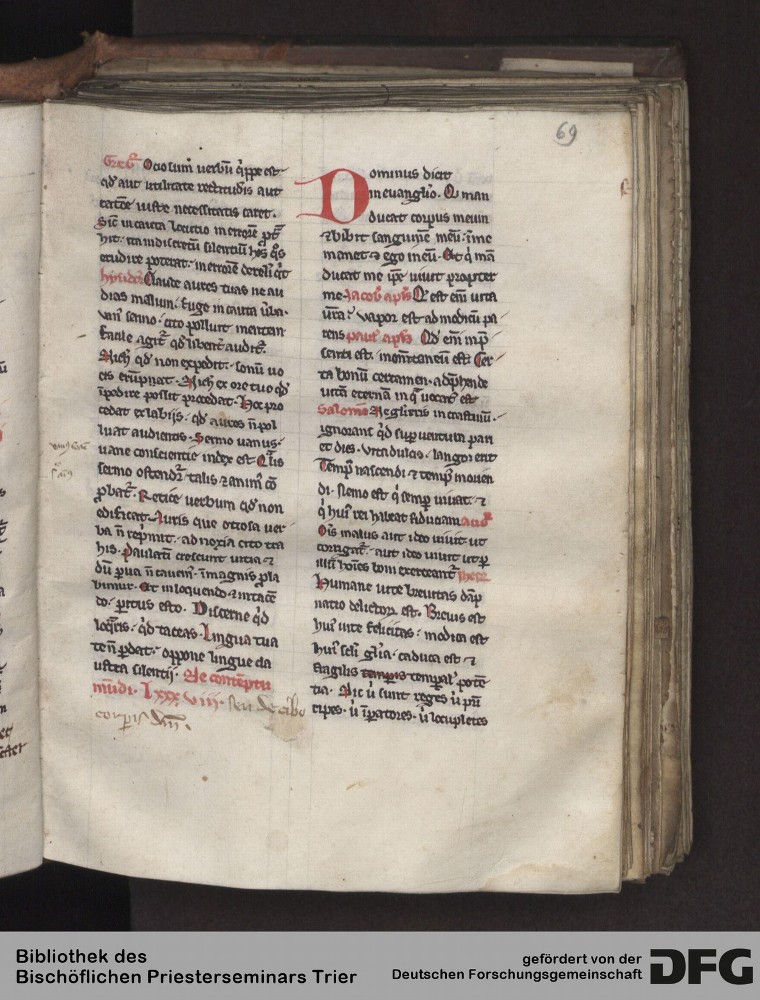 69
Ociosum uerbū q̄ppe est
qd̓ aut utilitate rectitudinis aut
iuste necessitatis caret.
Sic̄ incauta locutio in errorē
hit. ita indiscretū silentiū
erudire poterat. in errorē
Claude aures tuas ne au
dias malum. fuge incauta
Van̓ sermo. cito polluit mentem
facile agit᷑ qd̓ libent̓ audit᷑.
Nich̓ qd̓ non expedit. sonū uo
cis erūpat. Nich̓ ex ore tuo qd̓
īpedire possit procedat. Hoc pro
cedat ex labijs. qd̓ aures n̄ pol
luat audientis. Sermo uanus
uane conscientie index est. Q̄lis
sermo ostendit᷑ talis & anim̓
ꝓbat᷑. Retice uerbum qd̓ non
edificat. Auris que otiosa uer
ba n̄ rep̄mit. ad noxia cito
Paulatī crescunt uitia &
dū parua n̄ cauem᷒. ī magnis
bimur. Et in loquendo & in tacē
do. peritus esto. Discerne q̇d
loq̄ris. q̇d taceas. Lingua tua
te n̄ perdat. oppone lingue cla
ustra silentij. De contēptu
mūdi. Lxxxviii. seu de cibo
corꝑis dn̄i.
Dominus dicit
in euangl̓io. Qui man
ducat corpus meum
& bibit sanguinē meū. ī me
manet & ego in eū. Et q̇ mā
ducat me ip̄e uiuit propter
me. Jacob̓ apl̓s Q̄ est eni᷑ uita
ur̄a. uapor est ad modicū pa
rens. Paul᷒ apl̓s. Qd̓ eni᷑
est. momētaneū est. Cer
ta bonū certamen. adp̄hende
uitā eternā in q̄ uocat᷒ es
Salomon
ignorans q̇d superuentura pari
et dies.
Temp᷒ nascendi & temp᷒ morien
di. Nemo est q̇ semper uiuat. &
q̇ hui᷒ rei habeat fiduciam. Aug᷒
Oīs malus aut ideo uiuit ut
corrigat᷑. aut ideo uiuit ut per
illū boni exerceant᷑.
Humane uite breuitas
natio delictor̄ est. Breuis est
hui᷒ uite felicitas. modica est
hui᷒ sc̄li gl̓ia. caduca est &
fragilis temporal᷒ potē
tia. Dic ubi sunt reges ubi p̄n
cipes. ubi īperatores. ubi locupletes
Bibliothek des
Bischöflichen Priesterseminars Trier
gefördert von der
Deutschen Forschungsgemeinschaft
DFG